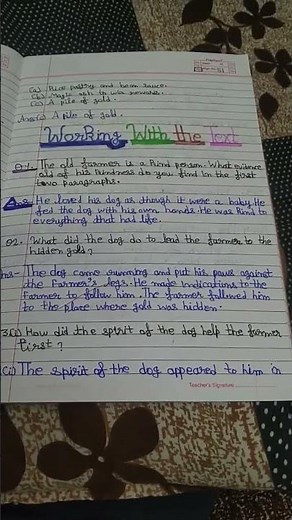 (a) Rice pastry and bean sauce.
(b) Magic ash as reward.
(c) A pile of gold.
Ans(c) A pile of gold.
Working With the Text
Q.1. The old farmer is a kind person. What evidence
of his kindness do you find in the first
two paragraphs.
Ans. He loved his dog as though it were a baby. He
fed the dog with his own hands. He was kind to
everything that had life.
Q2. What did the dog do to lead the farmer to the
hidden gold?
Ans- The dog came running and put his paws against
the farmer's legs. He made indications to the
farmer to follow him. The farmer followed him
to the place where gold was hidden.
3.(i) How did the spirit of the dog help the farmer
first?
(i) The spirit of the dog appeared to him in
Teacher's Signature